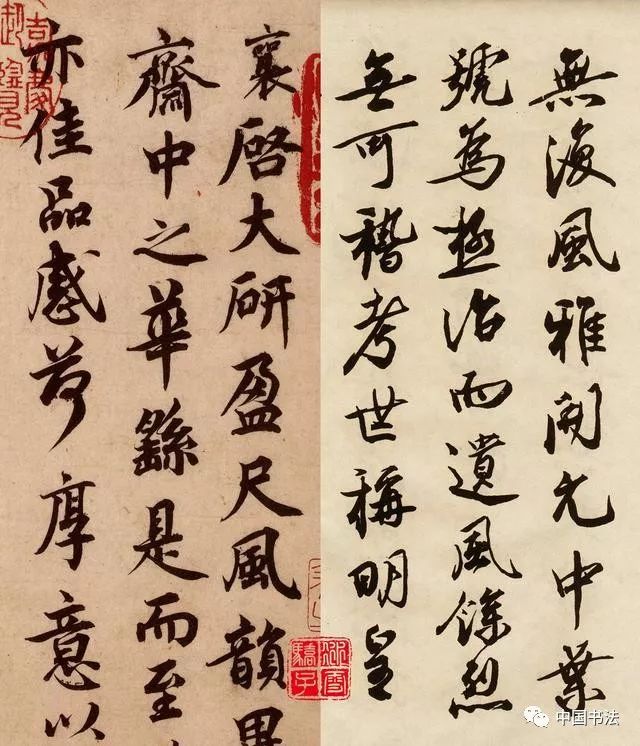 襄啓大研盈尺風韻異
齋中之華繇是而至
亦佳品感荷厚意以
無復風雅開元中葉
號為極治而遺風餘烈
無可稽考世稱明皇
中国书法